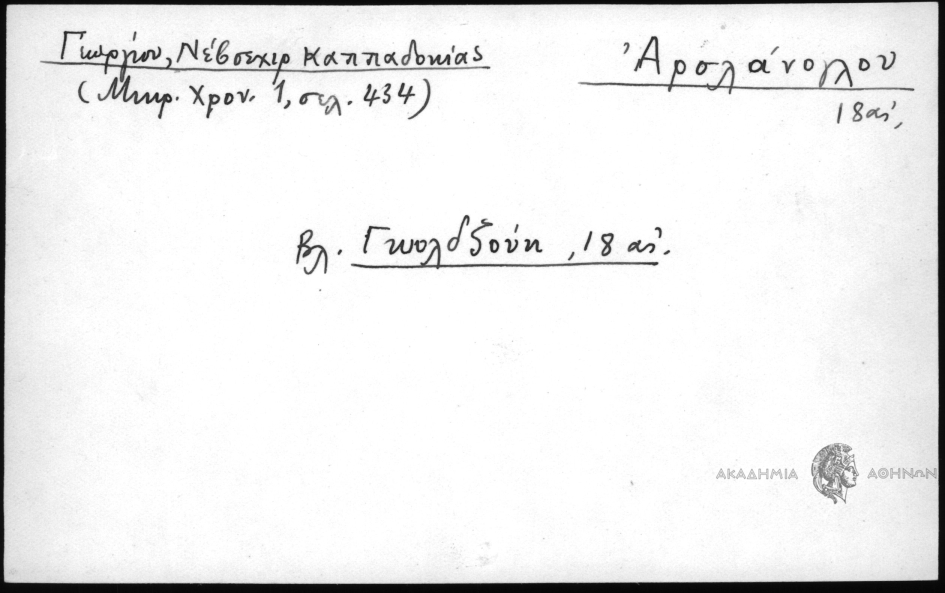 Γεωργίου, Νέβσεχιρ Καππαδοκίας
(Μικρ. Χρον. 1, σελ. 434)
Ἀρσλάνογλου
18 αἰ.
Βλ. Γκιολδζούκ, 18 αἰ.
ΑΚΑΔΗΜΙΑ ΑΘΗΝΩΝ